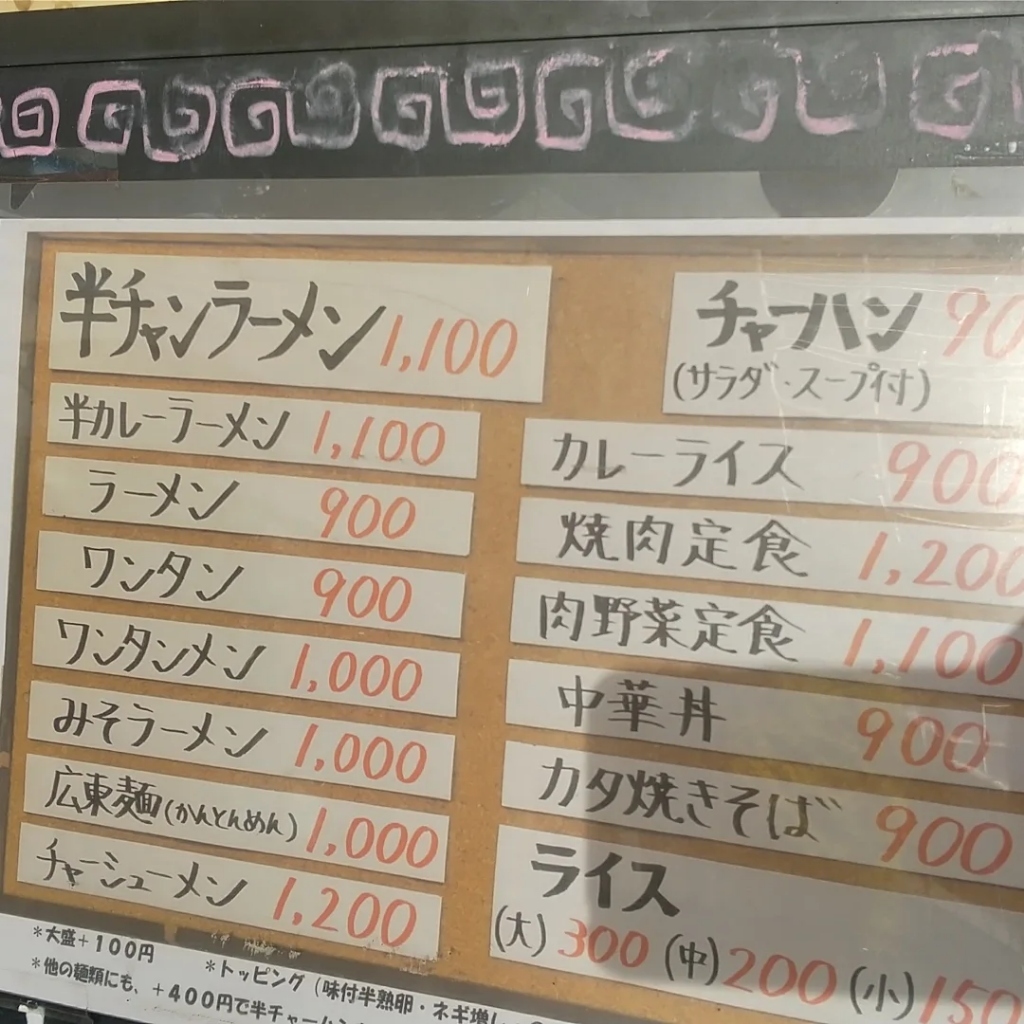 半チャンラーメン 1,100
半カレーラーメン 1,100
ラーメン 900
ワンタン 900
ワンタンメン 1,000
みそラーメン 1,000
広東麺(かんとんめん) 1,000
チャーシューメン 1,200
チャーハン 90
(サラダ・スープ付)
カレーライス 900
焼肉定食 1,200
肉野菜定食 1,100
中華丼 900
カタ焼きそば 900
ライス
(大) 300 (中) 200 (小) 150
*大盛+100円
*トッピング (味付半熟卵・ネギ増し
*他の麺類にも、+400円で半チャーハン